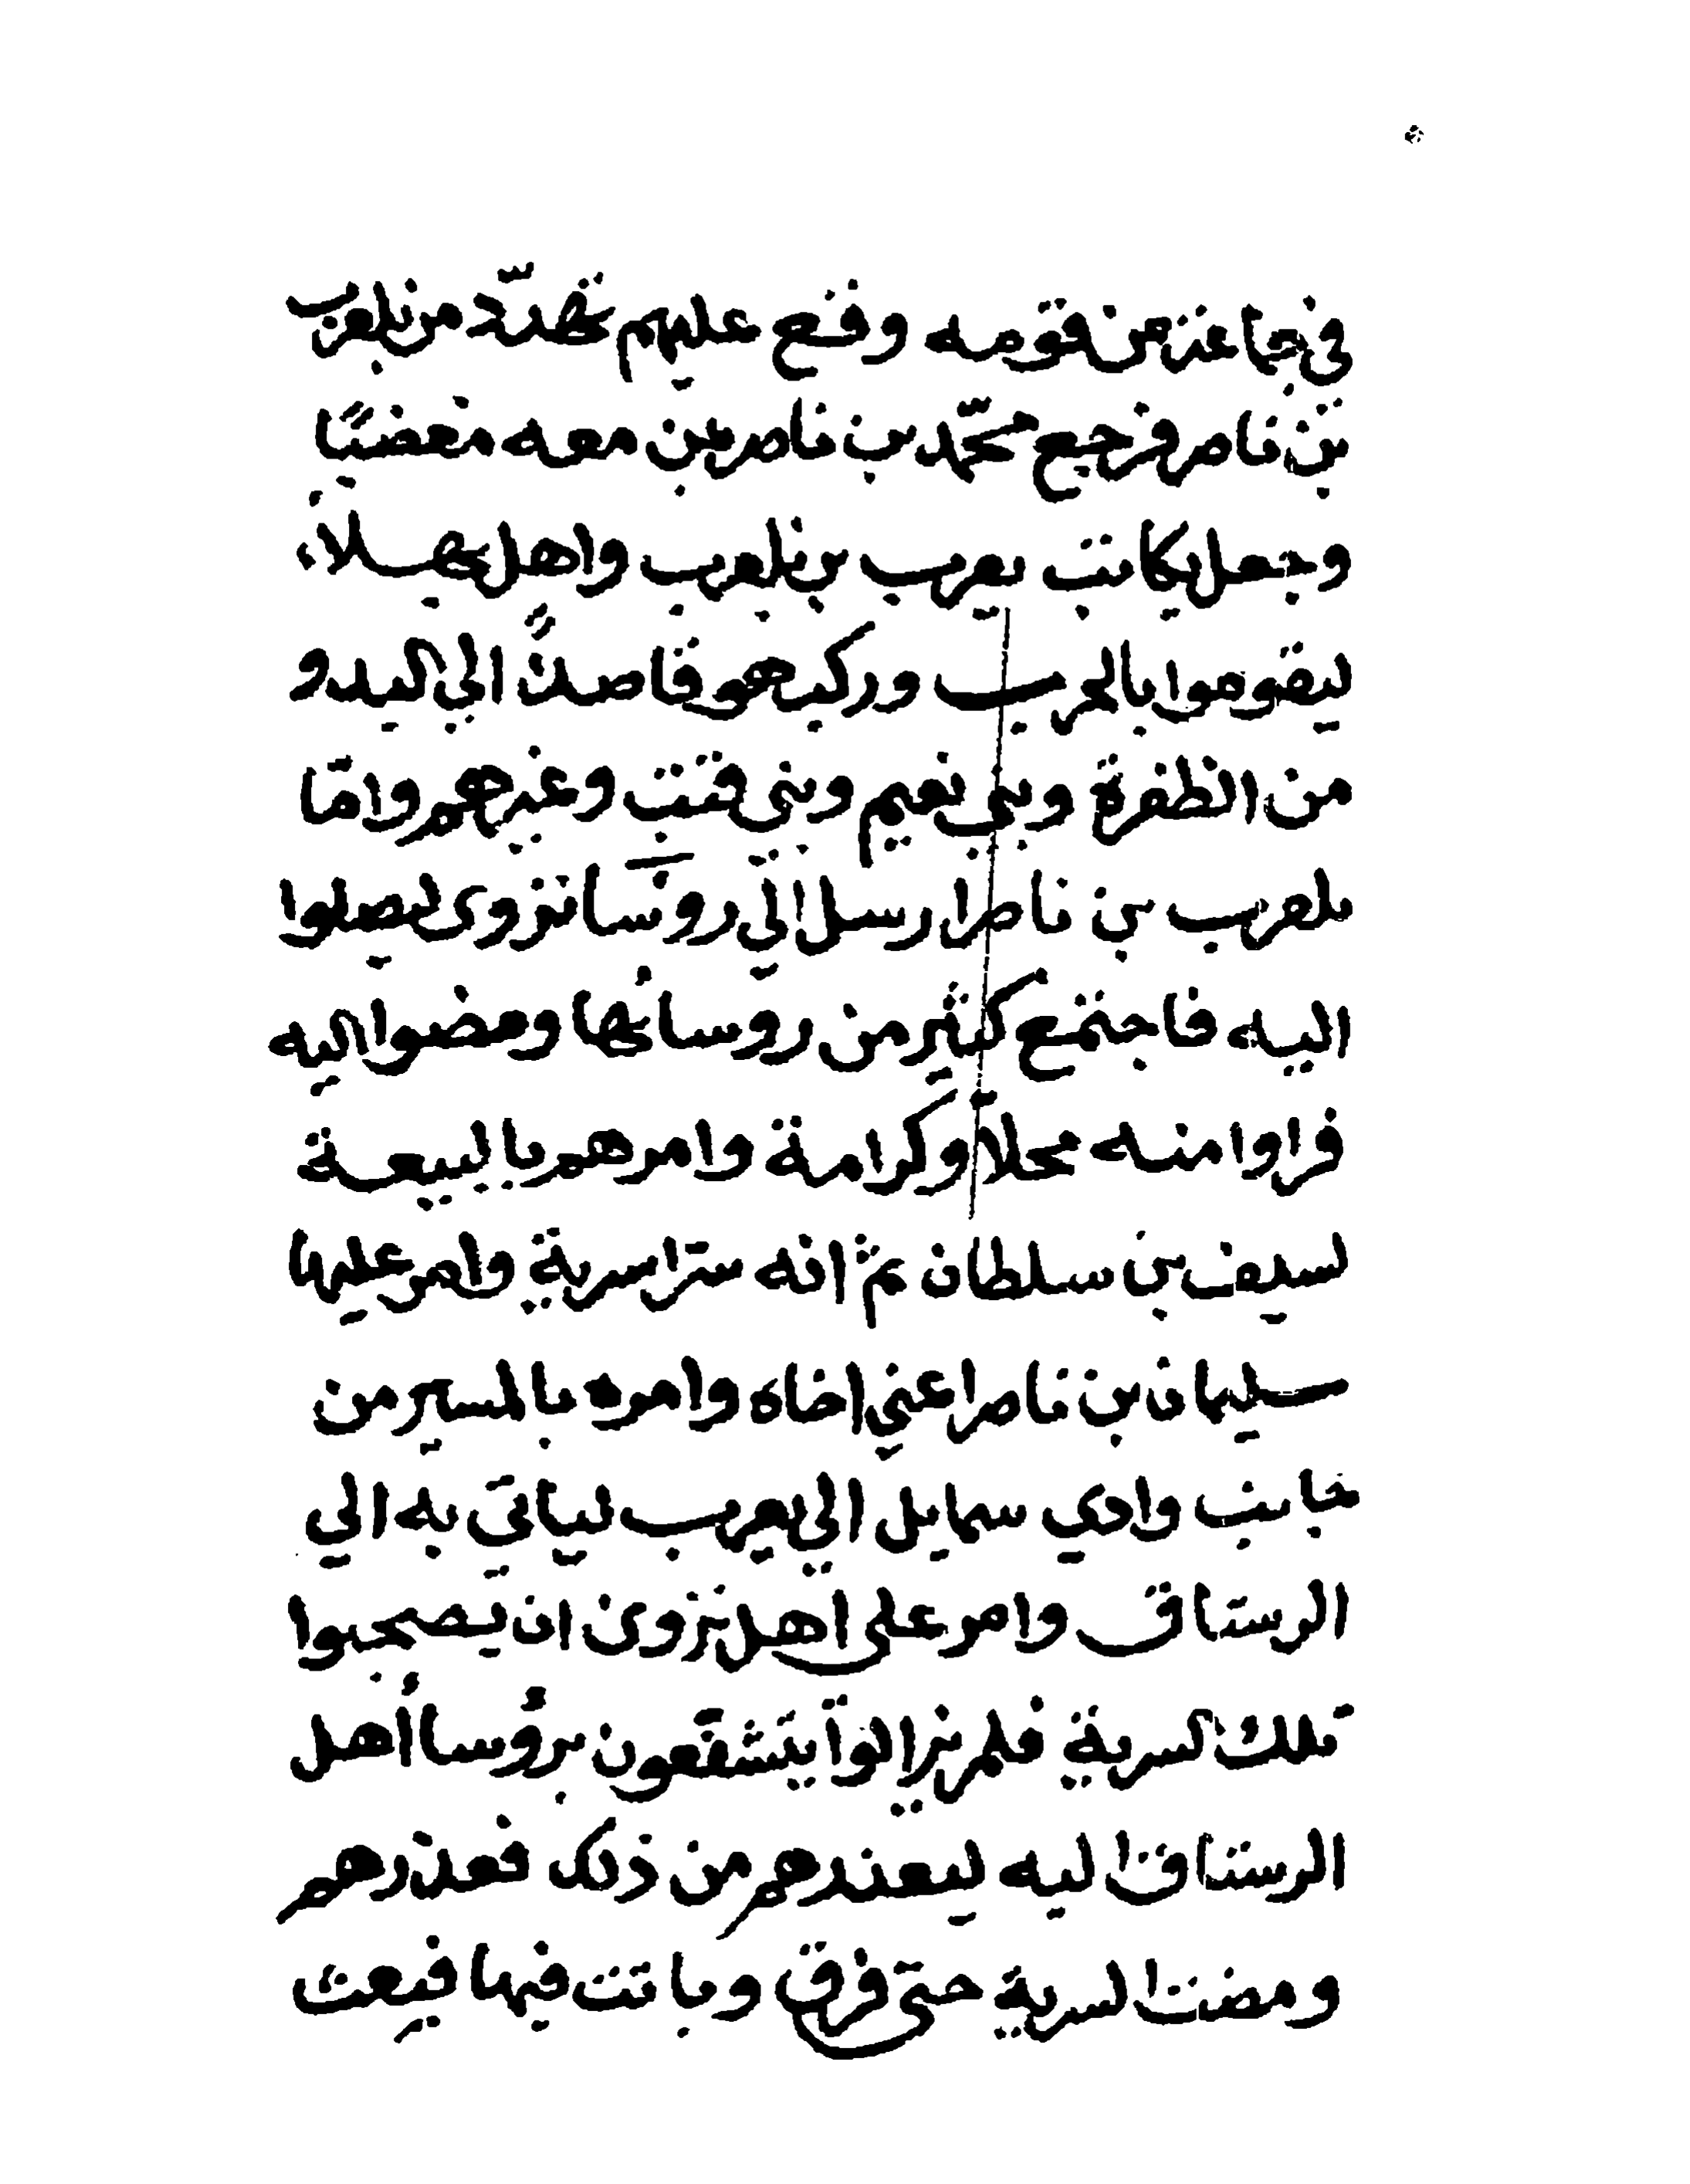 في جماعة من قومه وقع عليهم تهدّد من بلعرب
بن ناصر فرجع محمد بن ناصر بمن معه مغضبًا
وجعل يكاتب يعرب بن بلعرب واهل بهلاء
ليقوموا بالحرب وركب هو قاصدًا الي البدو
من الظفرة وبني نعيم وبني قتب وغيرهم وامّا
بلعرب بن ناصر ارسل الي روسا نزوى ليصلوا
اليه فاجتمع كثير من روسائها ومضوا اليه
فراوا منه محلاً وكرامة وامرهم بالبيعة
لسيف بن سلطان ثم انه سرا سرية وامر عليها
سليمان بن ناصر اعني اخاه وامره بالمسير من
جانب وادي سمايل الي يعرب لياتي به الي
الرستاق وامر على اهل نزوى ان يصحبوا
تلك السرية فلم يزالوا يتشفعون برؤسا أهل
الرستاق اليه ليعذرهم من ذلك فعذرهم
ومضت السرية حتى فرق وباتت فيها فبعث